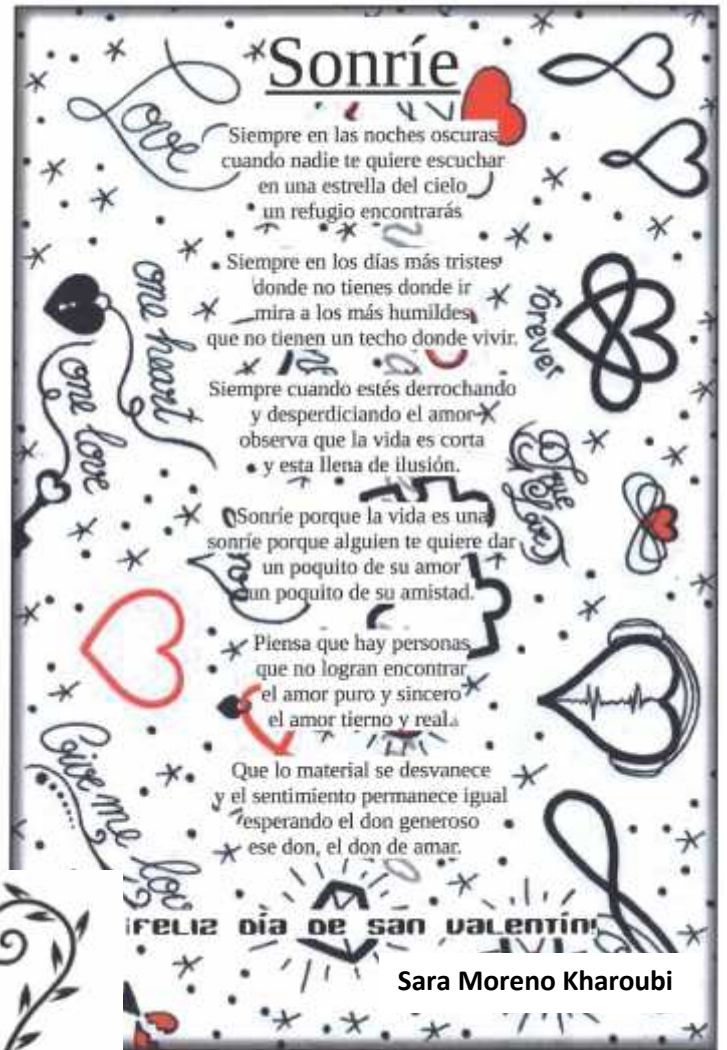 Sonríe
Love
Siempre en las noches oscuras
cuando nadie te quiere escuchar
en una estrella del cielo
un refugio encontrarás
Siempre en los días más tristes
donde no tienes donde ir
mira a los más humildes
que no tienen un techo donde vivir.
forever
one heart
one love
Siempre cuando estés derrochando
y desperdiciando el amor
observa que la vida es corta
y esta llena de ilusión.
True
Love
Sonríe porque la vida es una
sonríe porque alguien te quiere dar
un poquito de su amor
un poquito de su amistad.
Piensa que hay personas
que no logran encontrar
el amor puro y sincero
el amor tierno y real.
Give me
Que lo material se desvanece
y el sentimiento permanece igual
esperando el don generoso
ese don, el don de amar.
¡FELIZ DÍA DE SAN VALENTÍN!
Sara Moreno Kharoubi